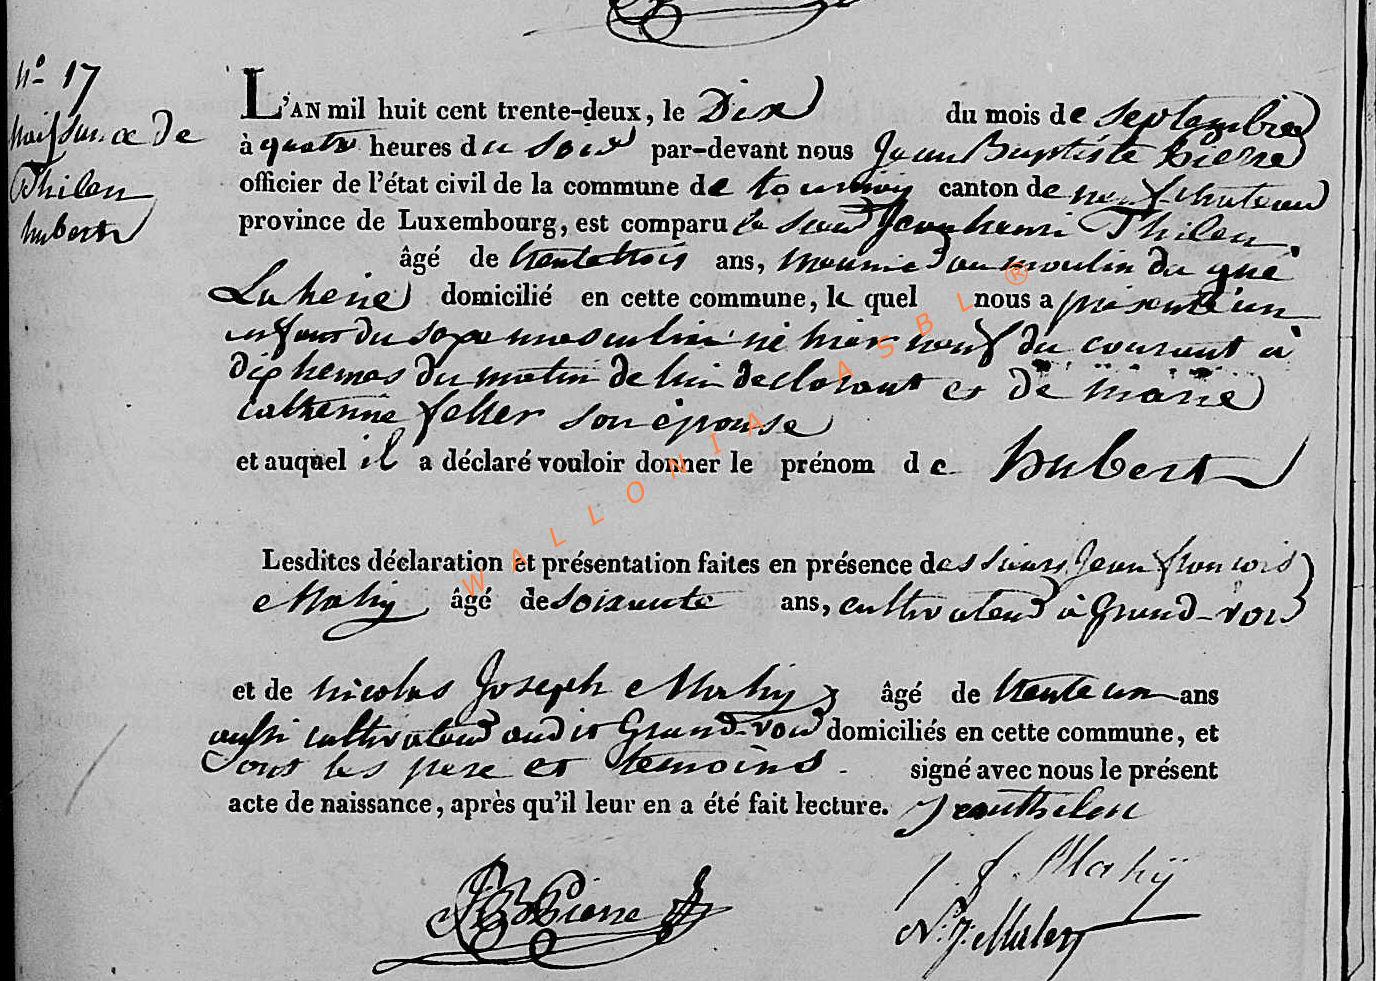 nº 17
Naissance de
Thilen
hubert
L'AN mil huit cent trente-deux, le Dix du mois de septembre
à quatre heures du soir par-devant nous Jean Baptiste Pierre
officier de l'état civil de la commune de tournay canton de neufchateau
province de Luxembourg, est comparu le sieur Jean henri Thilen
âgé de trente trois ans, meunier au moulin du gué
La herie domicilié en cette commune, le quel nous a présenté un
enfant du sexe masculin né hier neuf du courant à
dix heures du matin de lui déclarant et de marie
catherine feller son épouse
et auquel il a déclaré vouloir donner le prénom de hubert
Lesdites déclaration et présentation faites en présence des sieurs Jean françois
Mahy âgé de soixante ans, cultivateur à Grand-voir
et de nicolas Joseph Mahy âgé de trente un ans
aussi cultivateur audit Grand-voir domiciliés en cette commune, et
ont les pere et temoins signé avec nous le présent
acte de naissance, après qu'il leur en a été fait lecture. Jean thilen
J. f. Mahij
JB Pierre
N. J. Mahy
WALLONIA ASBL ®